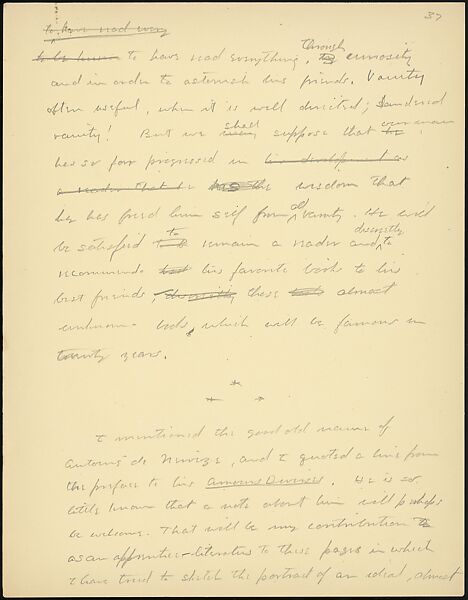 37
to have read every
to be known to have read everything, through curiosity
and in order to astonish his friends. Vanity
often useful, when it is well directed; slandered
vanity! But we shall suppose that our man
has so far progressed in his development as
a reader that he has the wisdom that
he has freed him self from all vanity. He will
be satisfied to remain a reader and discreetly to
recommend his favorite books to his
best friends discreetly those almost
unknown books, which will be famous in
twenty years.
* * *
I mentioned the good old name of
Antoine de Nervèze, and I quoted a line from
the preface to his Amours Diverses. He is so
little known that a note about him will perhaps
be welcome. That will be my contribution
as an apprentice-literatus to these pages in which
I have tried to sketch the portrait of an ideal, almost